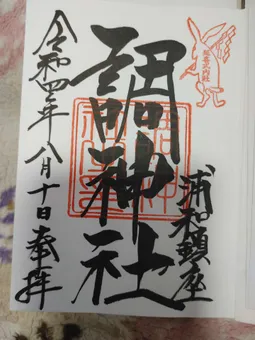 浦和鎮座
調神社
令和四年八月十日奉拝